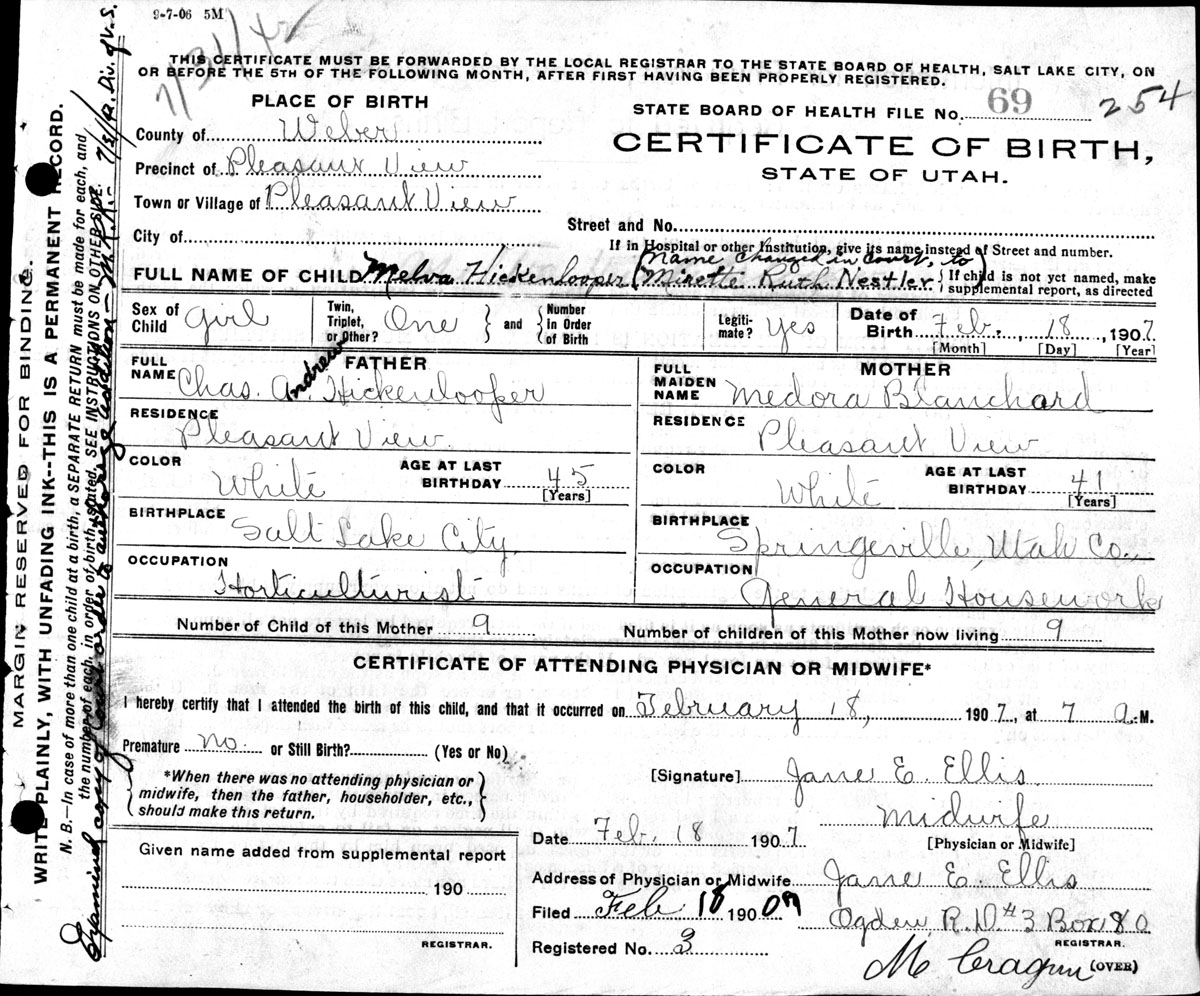 9-7-06 5M
7/31/42
THIS CERTIFICATE MUST BE FORWARDED BY THE LOCAL REGISTRAR TO THE STATE BOARD OF HEALTH, SALT LAKE CITY, ON
OR BEFORE THE 5TH OF THE FOLLOWING MONTH, AFTER FIRST HAVING BEEN PROPERLY REGISTERED.
PLACE OF BIRTH
STATE BOARD OF HEALTH FILE No. 69 254
County of Weber
CERTIFICATE OF BIRTH,
Precinct of Pleasant View
STATE OF UTAH.
Town or Village of Pleasant View
Street and No.
City of
If in Hospital or other Institution, give its name instead of Street and number.
FULL NAME OF CHILD Melva Hickenlooper (Name changed in court, to Mirette Ruth Nestler) If child is not yet named, make supplemental report, as directed
Sex of Child Girl Twin, Triplet, or Other? One and Number In Order of Birth Legitimate? Yes Date of Birth Feb. 18, 1907
[Month] [Day] [Year]
FATHER
MOTHER
FULL NAME Chas. A. Andrew Hickenlooper
FULL MAIDEN NAME Medora Blanchard
RESIDENCE Pleasant View.
RESIDENCE Pleasant View
COLOR White AGE AT LAST BIRTHDAY 45 [Years]
COLOR White AGE AT LAST BIRTHDAY 41 [Years]
BIRTHPLACE Salt Lake City,
BIRTHPLACE Springeville, Utah Co.
OCCUPATION Horticulturist
OCCUPATION General Housework
Number of Child of this Mother 9 Number of children of this Mother now living 9
CERTIFICATE OF ATTENDING PHYSICIAN OR MIDWIFE*
I hereby certify that I attended the birth of this child, and that it occurred on February 18, 1907, at 7 a. M.
Premature no. or Still Birth? (Yes or No)
*When there was no attending physician or
midwife, then the father, householder, etc.,
should make this return.
[Signature] Jane E. Ellis
Midwife
[Physician or Midwife]
Date Feb, 18 1907
Given name added from supplemental report
190
REGISTRAR.
Address of Physician or Midwife Jane E. Ellis
Filed Feb 18 1907 Ogden, R. D. #3 Box 80
REGISTRAR.
Registered No. 3
M Cragun (OVER)
MARGIN RESERVED FOR BINDING.
WRITE PLAINLY, WITH UNFADING INK--THIS IS A PERMANENT RECORD.
N. B.—In case of more than one child at a birth, a SEPARATE RETURN must be made for each, and
the number of each, in order of birth, stated, SEE INSTRUCTIONS ON OTHER SIDE.
copy of court order to authorize addition
Div. of V. S.